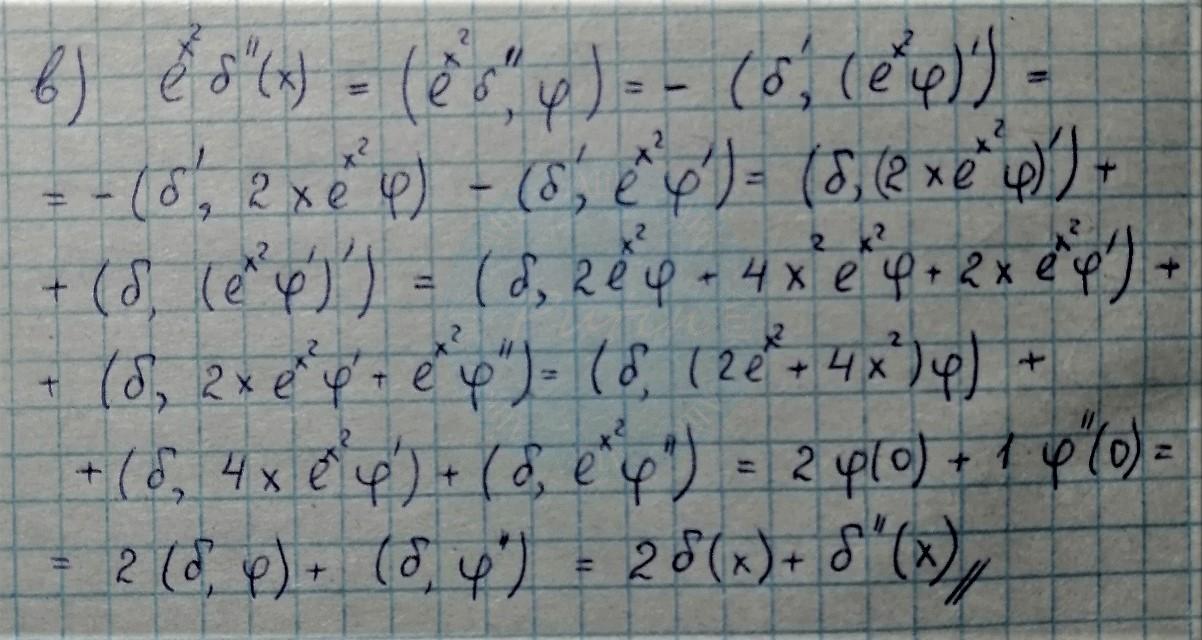 в) e^{x^2} δ''(x) = (e^{x^2} δ'', φ) = - (δ', (e^{x^2} φ)') =
= - (δ', 2 x e^{x^2} φ) - (δ', e^{x^2} φ') = (δ, (2 x e^{x^2} φ)') +
+ (δ, (e^{x^2} φ')') = (δ, 2 e^{x^2} φ + 4 x^2 e^{x^2} φ + 2 x e^{x^2} φ') +
+ (δ, 2 x e^{x^2} φ' + e^{x^2} φ'') = (δ, (2 e^{x^2} + 4 x^2) φ) +
+ (δ, 4 x e^{x^2} φ') + (δ, e^{x^2} φ'') = 2 φ(0) + 1 φ''(0) =
= 2 (δ, φ) + (δ, φ'') = 2 δ(x) + δ''(x) //